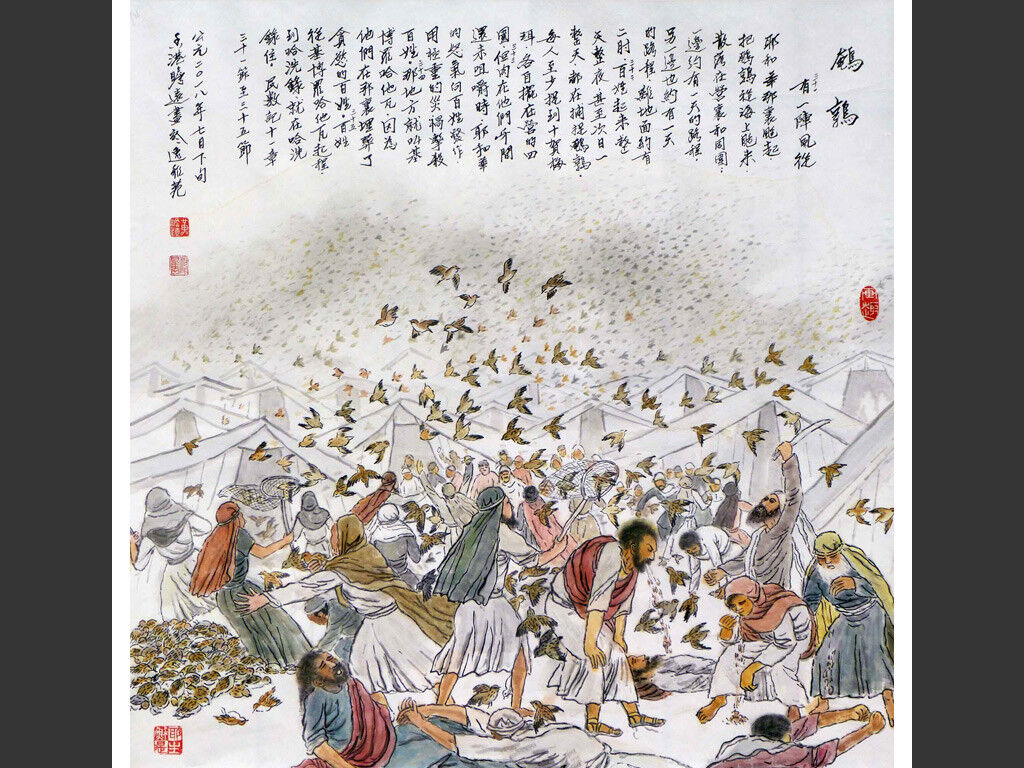 鵪鶉
有一陣風從
耶和華那裏颳起
把鵪鶉從海上颳來.
散落在營裏和周圍.
邊約有一天的路程
另一邊也約有一天
的路程.離地面約有
二肘.百姓起來整
天整夜甚至次日一
整天.都在捕捉鵪鶉.
每人至少捉到十賀梅
珥.各自擺在營的四
圍.但肉在他們牙間
還未咀嚼時.耶和華
的怒氣向百姓發作
用極重的災禍擊殺
百姓.那地方就叫基
博羅哈他瓦.因為
他們在那裏埋葬了
貪慾的百姓.百姓
從基博羅哈他瓦起程
到哈洗錄就在哈洗
錄住.民數記十一章
三十一節至三十五節
公元二〇一八年七月下旬
香港畫於逸雅苑